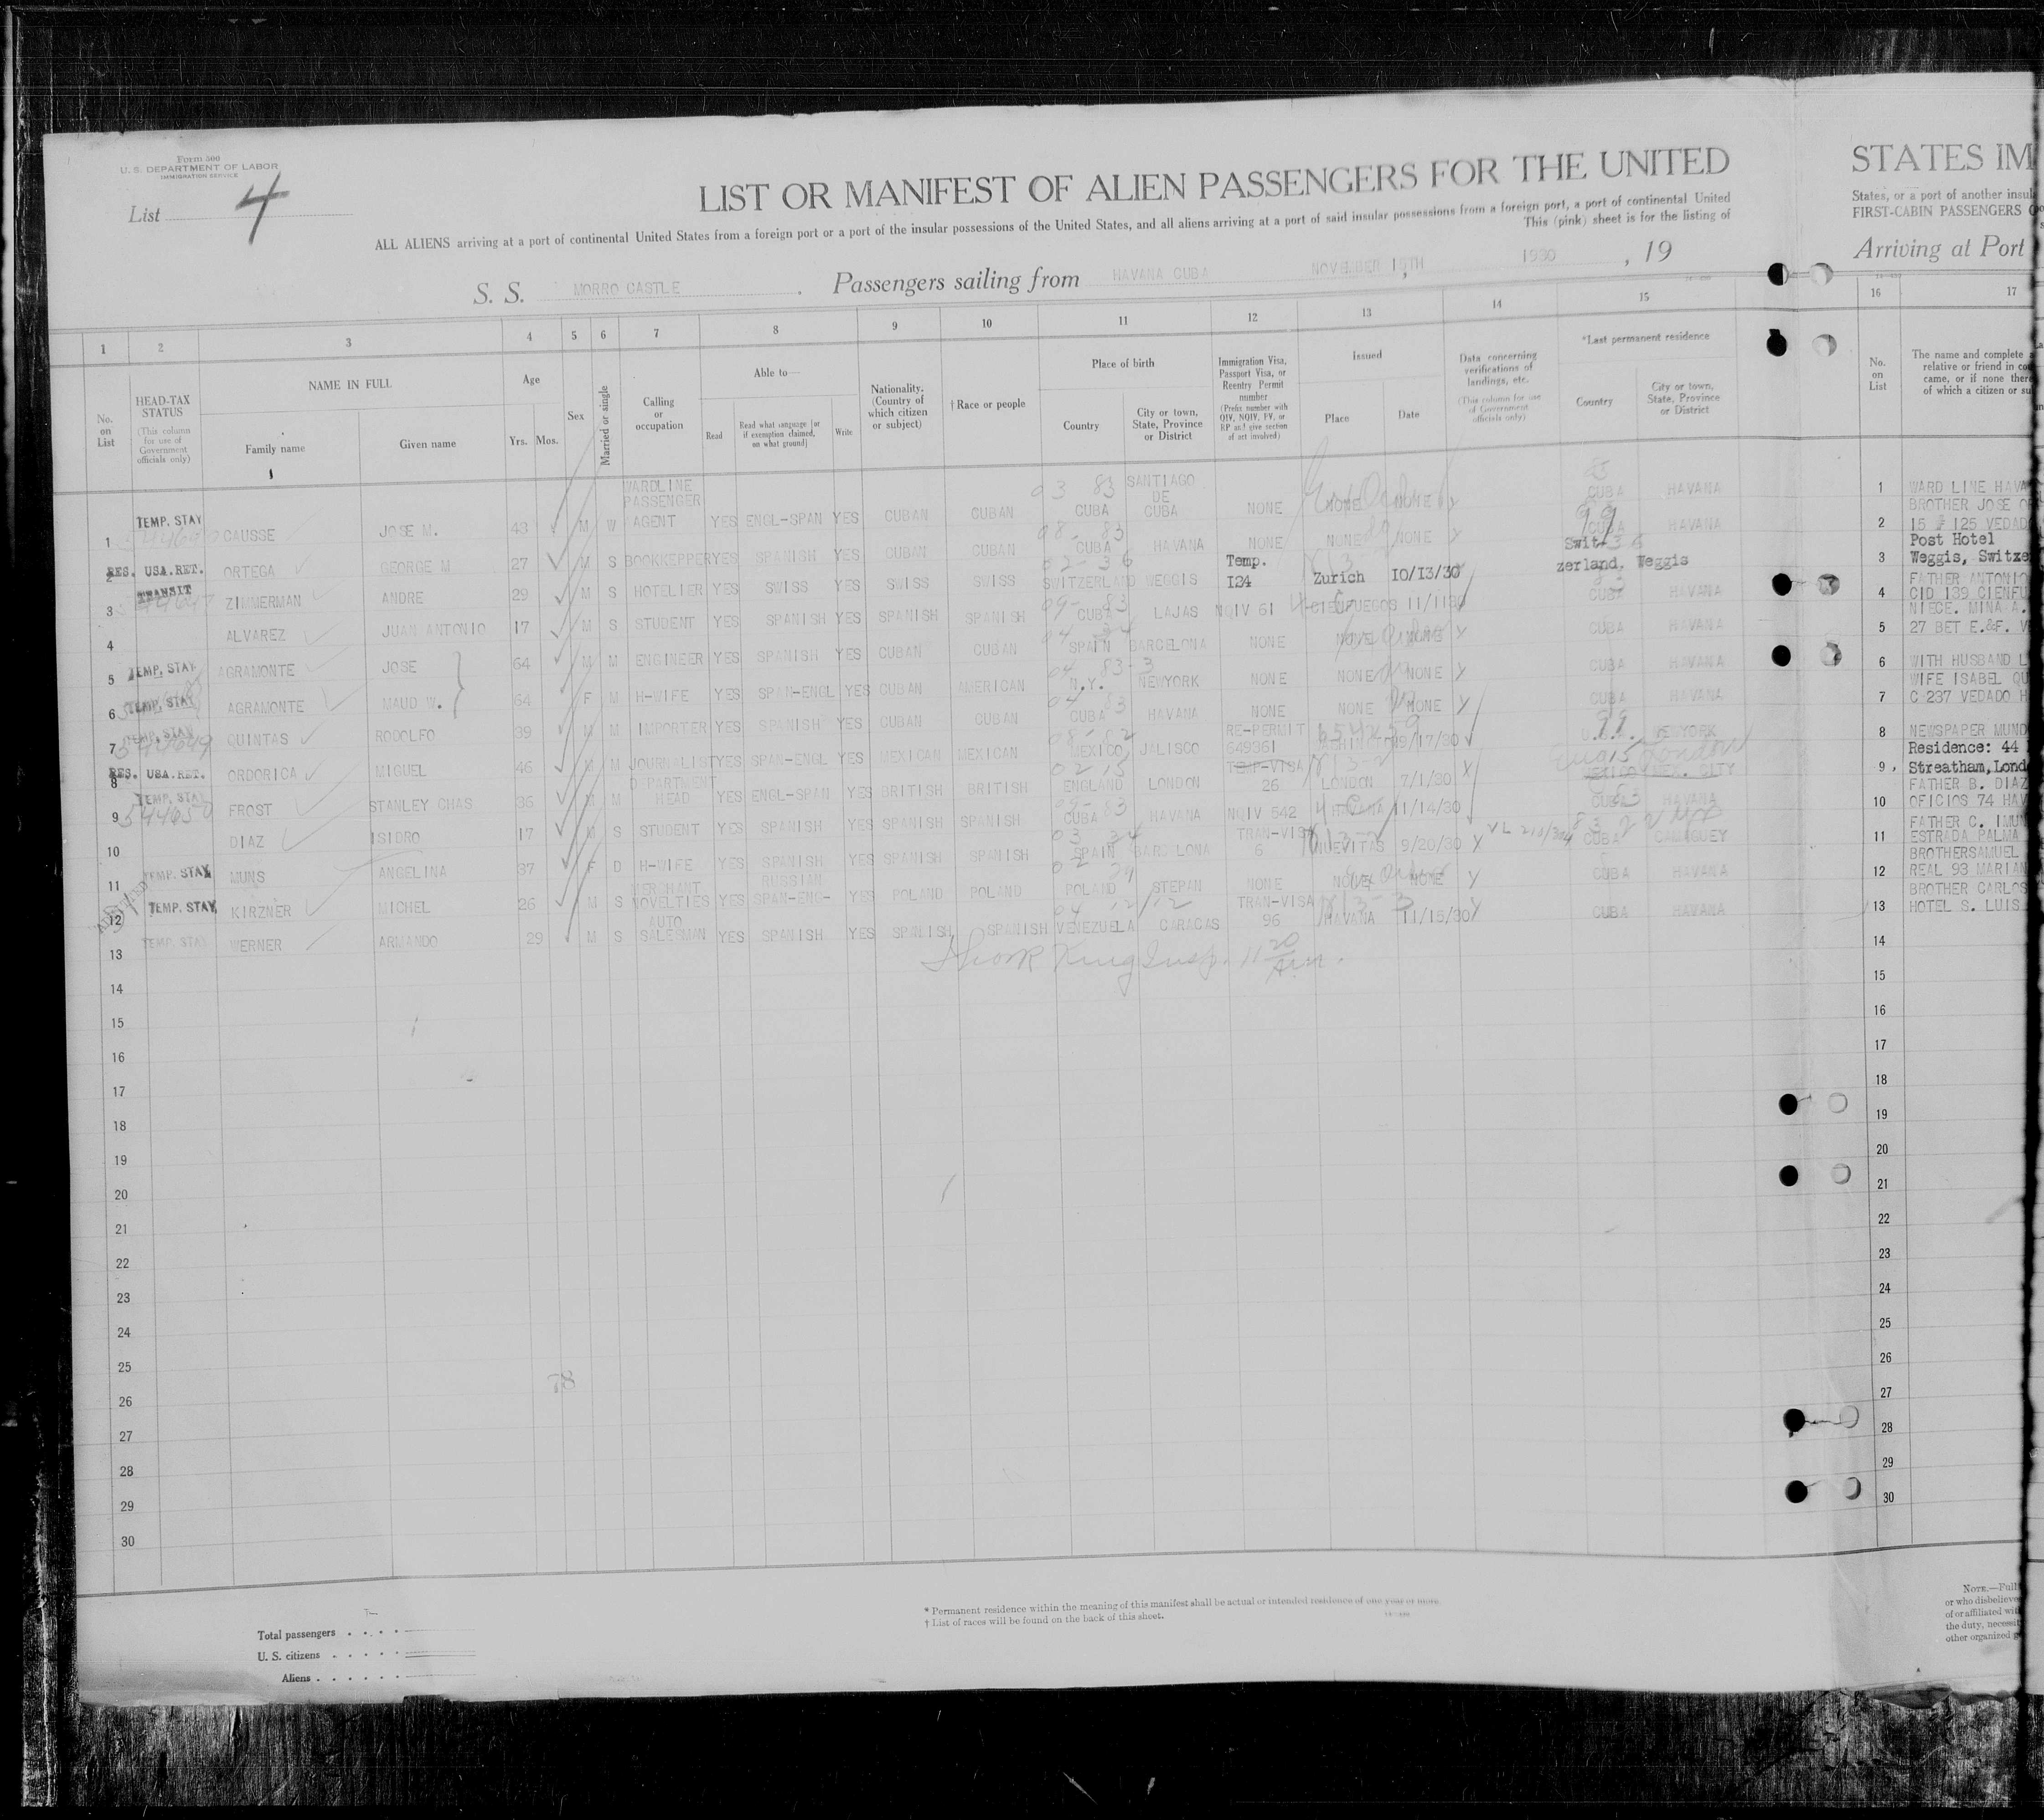 Form 500
U. S. DEPARTMENT OF LABOR
IMMIGRATION SERVICE
List 4
LIST OR MANIFEST OF ALIEN PASSENGERS FOR THE UNITED
ALL ALIENS arriving at a port of continental United States from a foreign port or a port of the insular possessions of the United States, and all aliens arriving at a port of said insular possessions from a foreign port, a port of continental United
This (pink) sheet is for the listing of
S. S. MORRO CASTLE , Passengers sailing from HAVANA CUBA NOVEMBER 15TH , 1930 , 19
STATES IM
States, or a port of another insul
FIRST-CABIN PASSENGERS
Arriving at Port
1 2 3 4 5 6 7 8 9 10 11 12 13 14 15 16 17
No. on List
HEAD-TAX STATUS
(This column for use of Government officials only)
NAME IN FULL
Family name
Given name
Age
Yrs. Mos.
Sex
Married or single
Calling or occupation
Able to—
Read
Read what language [or if exemption claimed, on what ground]
Write
Nationality. (Country of which citizen or subject)
† Race or people
Place of birth
Country
City or town, State, Province or District
Immigration Visa, Passport Visa, or Reentry Permit number
(Prefix number with QIV, NQIV, PV, or RP and give section of act involved)
Issued
Place
Date
Data concerning verifications of landings, etc.
(This column for use of Government officials only)
*Last permanent residence
Country
City or town, State, Province or District
No. on List
The name and complete
relative or friend in
came, or if none there
of which a citizen or su
1 TEMP. STAY CAUSSE JOSE M. 43 M W WARDLINE PASSENGER AGENT YES ENGL-SPAN YES CUBAN CUBAN CUBA SANTIAGO DE CUBA NONE NONE NONE CUBA HAVANA
2 RES. USA. RET. ORTEGA GEORGE M 27 M S BOOKKEPPER YES SPANISH YES CUBAN CUBAN CUBA HAVANA NONE NONE NONE CUBA HAVANA
3 TRANSIT ZIMMERMAN ANDRE 29 M S HOTELIER YES SWISS YES SWISS SWISS SWITZERLAND WEGGIS Temp. I24 Zurich IO/I3/30 Switzerland. Weggis
4 ALVAREZ JUAN ANTONIO 17 M S STUDENT YES SPANISH YES SPANISH SPANISH CUBA LAJAS NQIV 61 CIENFUEGOS 11/1130 CUBA HAVANA
5 TEMP. STAY AGRAMONTE JOSE 64 M M ENGINEER YES SPANISH YES CUBAN CUBAN SPAIN BARCELONA NONE NONE NONE CUBA HAVANA
6 TEMP. STAY AGRAMONTE MAUD W. 64 F M H-WIFE YES SPAN-ENGL YES CUBAN AMERICAN N.Y. NEWYORK NONE NONE NONE CUBA HAVANA
7 TEMP. STAY 544649 QUINTAS RODOLFO 39 M M IMPORTER YES SPANISH YES CUBAN CUBAN CUBA HAVANA NONE NONE NONE CUBA HAVANA
8 RES. USA. RET. ORDORICA MIGUEL 46 M M JOURNALIST YES SPAN-ENGL YES MEXICAN MEXICAN MEXICO JALISCO RE-PERMIT 649361 9/17/30 NEWYORK
9 TEMP. STAY 544650 FROST STANLEY CHAS 36 M M DEPARTMENT HEAD YES ENGL-SPAN YES BRITISH BRITISH ENGLAND LONDON TEMP-VISA 26 LONDON 7/1/30 London
10 DIAZ ISIDRO 17 M S STUDENT YES SPANISH YES SPANISH SPANISH CUBA HAVANA NQIV 542 HAVANA 11/14/30 CUBA HAVANA
11 TEMP. STAY MUNS ANGELINA 37 F D H-WIFE YES SPANISH YES SPANISH SPANISH SPAIN BARCELONA TRAN-VISA 6 NUEVITAS 9/20/30 CUBA CAMAGUEY
12 TEMP. STAY KIRZNER MICHEL 26 M S MERCHANT NOVELTIES YES RUSSIAN SPAN-ENG- YES POLAND POLAND POLAND STEPAN NONE NONE NONE CUBA HAVANA
13 TEMP. STAY WERNER ARMANDO 29 M S AUTO SALESMAN YES SPANISH YES SPANISH SPANISH VENEZUELA CARACAS TRAN-VISA 96 HAVANA 11/15/30 CUBA HAVANA
King Insp. 11 20 A.m.
14
15
16
17
18
19
20
21
22
23
24
25
26
27
28
29
30
78
1 WARD LINE HAVA
BROTHER JOSE
2 15 # 125 VEDAD
Post Hotel
3 Weggis, Switze
FATHER ANTONIO
4 CID 139 CIENFU
NIECE. MINA A.
5 27 BET E.&F. V
6 WITH HUSBAND
WIFE ISABEL QU
7 C 237 VEDADO H
8 NEWSPAPER MUND
Residence: 44
9 Streatham, Lond
FATHER B. DIAZ
10 OFICIOS 74 HAV
FATHER C. IMUN
11 ESTRADA PALMA
BROTHERSAMUEL
12 REAL 93 MARIAN
BROTHER CARLOS
13 HOTEL S. LUIS
14
15
16
17
18
19
20
21
22
23
24
25
26
27
28
29
30
Total passengers
U. S. citizens
Aliens
* Permanent residence within the meaning of this manifest shall be actual or intended residence of one year or more.
† List of races will be found on the back of this sheet.
NOTE.—Full
or who disbelieve
of or affiliated wit
the duty, necessit
other organized